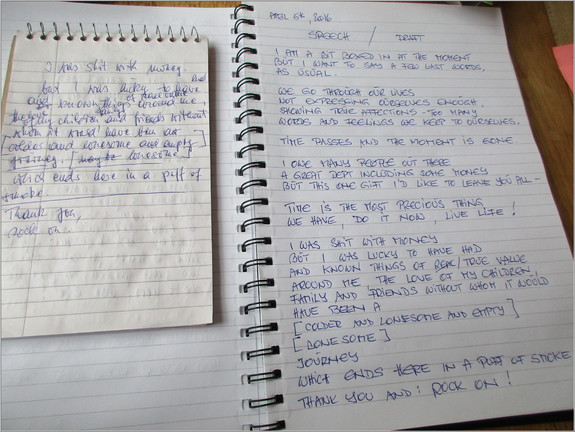 I was shit with money.
but I was lucky to have had
and known things of real value
around me,
family children and friends without
whom it would have been an
colder and lonesome and empty
journey. [maybe lonesome]
which ends here in a puff of
smoke.
Thank you,
rock on.
APRIL 6th, 2016
SPEECH / DRAFT
I AM A BIT BOXED IN AT THE MOMENT
BUT I WANT TO SAY A FEW LAST WORDS,
AS USUAL.
WE GO THROUGH OUR LIVES
NOT EXPRESSING OURSELVES ENOUGH.
SHOWING TRUE AFFECTIONS - TOO MANY
WORDS AND FEELINGS WE KEEP TO OURSELVES.
TIME PASSES AND THE MOMENT IS GONE
I OWE MANY PEOPLE OUT THERE
A GREAT DEPT INCLUDING SOME MONEY
BUT THIS ONE GIFT I'D LIKE TO LEAVE YOU ALL -
TIME IS THE MOST PRECIOUS THING
WE HAVE, DO IT NOW, LIVE LIFE!
I WAS SHIT WITH MONEY
BUT I WAS LUCKY TO HAVE HAD
AND KNOWN THINGS OF REAL/TRUE VALUE
AROUND ME, THE LOVE OF MY CHILDREN,
FAMILY AND FRIENDS WITHOUT WHOM IT WOULD
HAVE BEEN A
[COLDER AND LONESOME AND EMPTY]
[LONESOME]
JOURNEY
WHICH ENDS HERE IN A PUFF OF SMOKE
THANK YOU AND: ROCK ON!